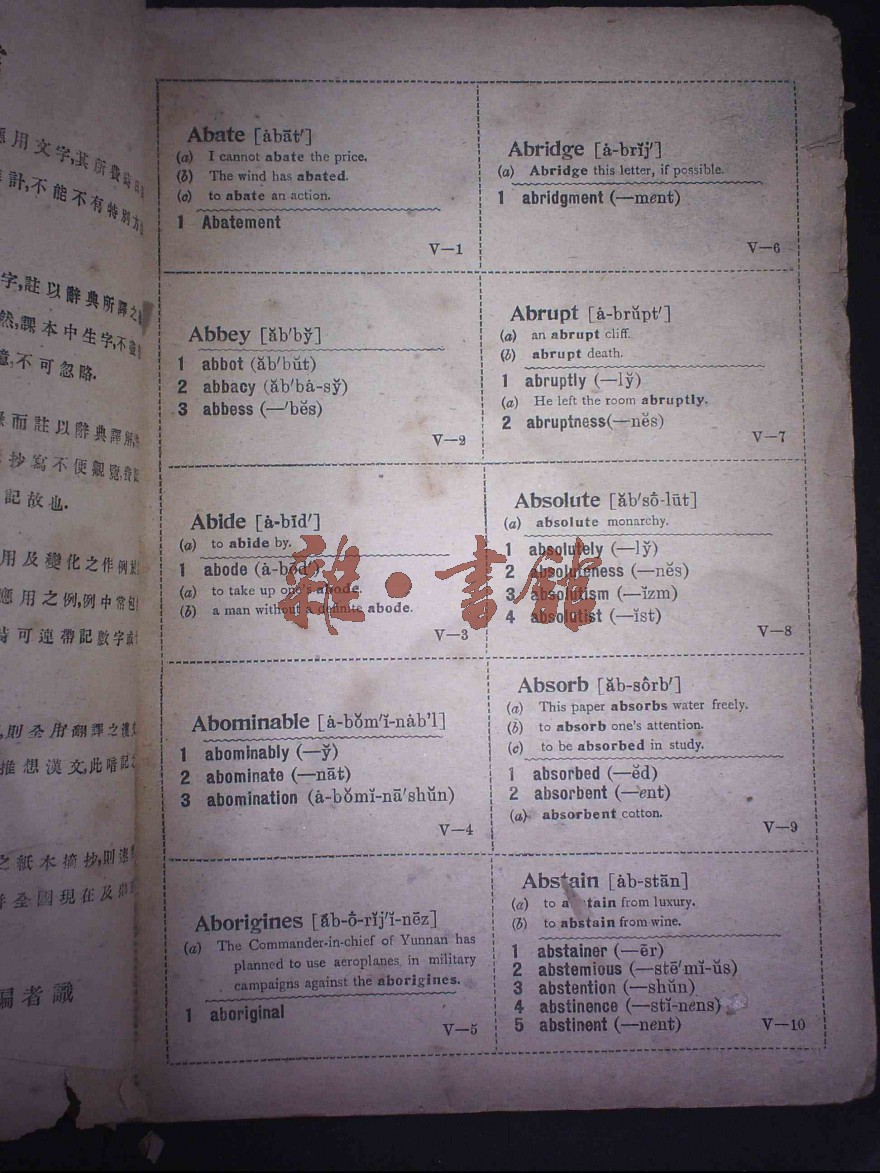 應用文字,其所費時日
計,不能不有特別方
字,註以辭典所譯之
然,課本中生字,不盡
意,不可忽略.
而註以辭典譯解,
抄寫不便觀覽,費
記故也.
用及變化之作例於
應用之例,例中常包
時可連帶記數字或
,則全用翻譯之漢文
推想漢文,此暗記之
之紙本摘抄,則逐
全國現在及
編者識
Abate [ȧbāt′]
(a) I cannot abate the price.
(b) The wind has abated.
(c) to abate an action.
1 Abatement
V—1
Abbey [ăb′by̆]
1 abbot (ăb′bŭt)
2 abbacy (ăb′bȧ-sy̆)
3 abbess (—′bĕs)
V—2
Abide [ȧ-bīd′]
(a) to abide by.
1 abode (ȧ-bōd′)
(a) to take up one's abode.
(b) a man without a definite abode.
V—3
Abominable [ȧ-bŏm′ĭ-nȧb'l]
1 abominably (—y̆)
2 abominate (—nāt)
3 abomination (ȧ-bŏmĭ-nā′shŭn)
V—4
Aborigines [ăb-ȯ-rĭj′ĭ-nēz]
(a) The Commander-in-chief of Yunnan has
planned to use aeroplanes in military
campaigns against the aborigines.
1 aboriginal
V—5
Abridge [ȧ-brĭj′]
(a) Abridge this letter, if possible.
1 abridgment (—ment)
V—6
Abrupt [ȧ-brŭpt′]
(a) an abrupt cliff.
(b) abrupt death.
1 abruptly (—ly̆)
(a) He left the room abruptly.
2 abruptness(—nĕs)
V—7
Absolute [ăb′sȯ-lūt]
(a) absolute monarchy.
1 absolutely (—ly̆)
2 absoluteness (—nĕs)
3 absolutism (—ĭzm)
4 absolutist (—ĭst)
V—8
Absorb [ăb-sôrb′]
(a) This paper absorbs water freely.
(b) to absorb one's attention.
(c) to be absorbed in study.
1 absorbed (—ĕd)
2 absorbent (—ent)
(a) absorbent cotton.
V—9
Abstain [ȧb-stān]
(a) to a tain from luxury.
(b) to abstain from wine.
1 abstainer (—ēr)
2 abstemious (—stē′mĭ-ŭs)
3 abstention (—shŭn)
4 abstinence (—stĭ-nens)
5 abstinent (—nent)
V—10
雜·書館